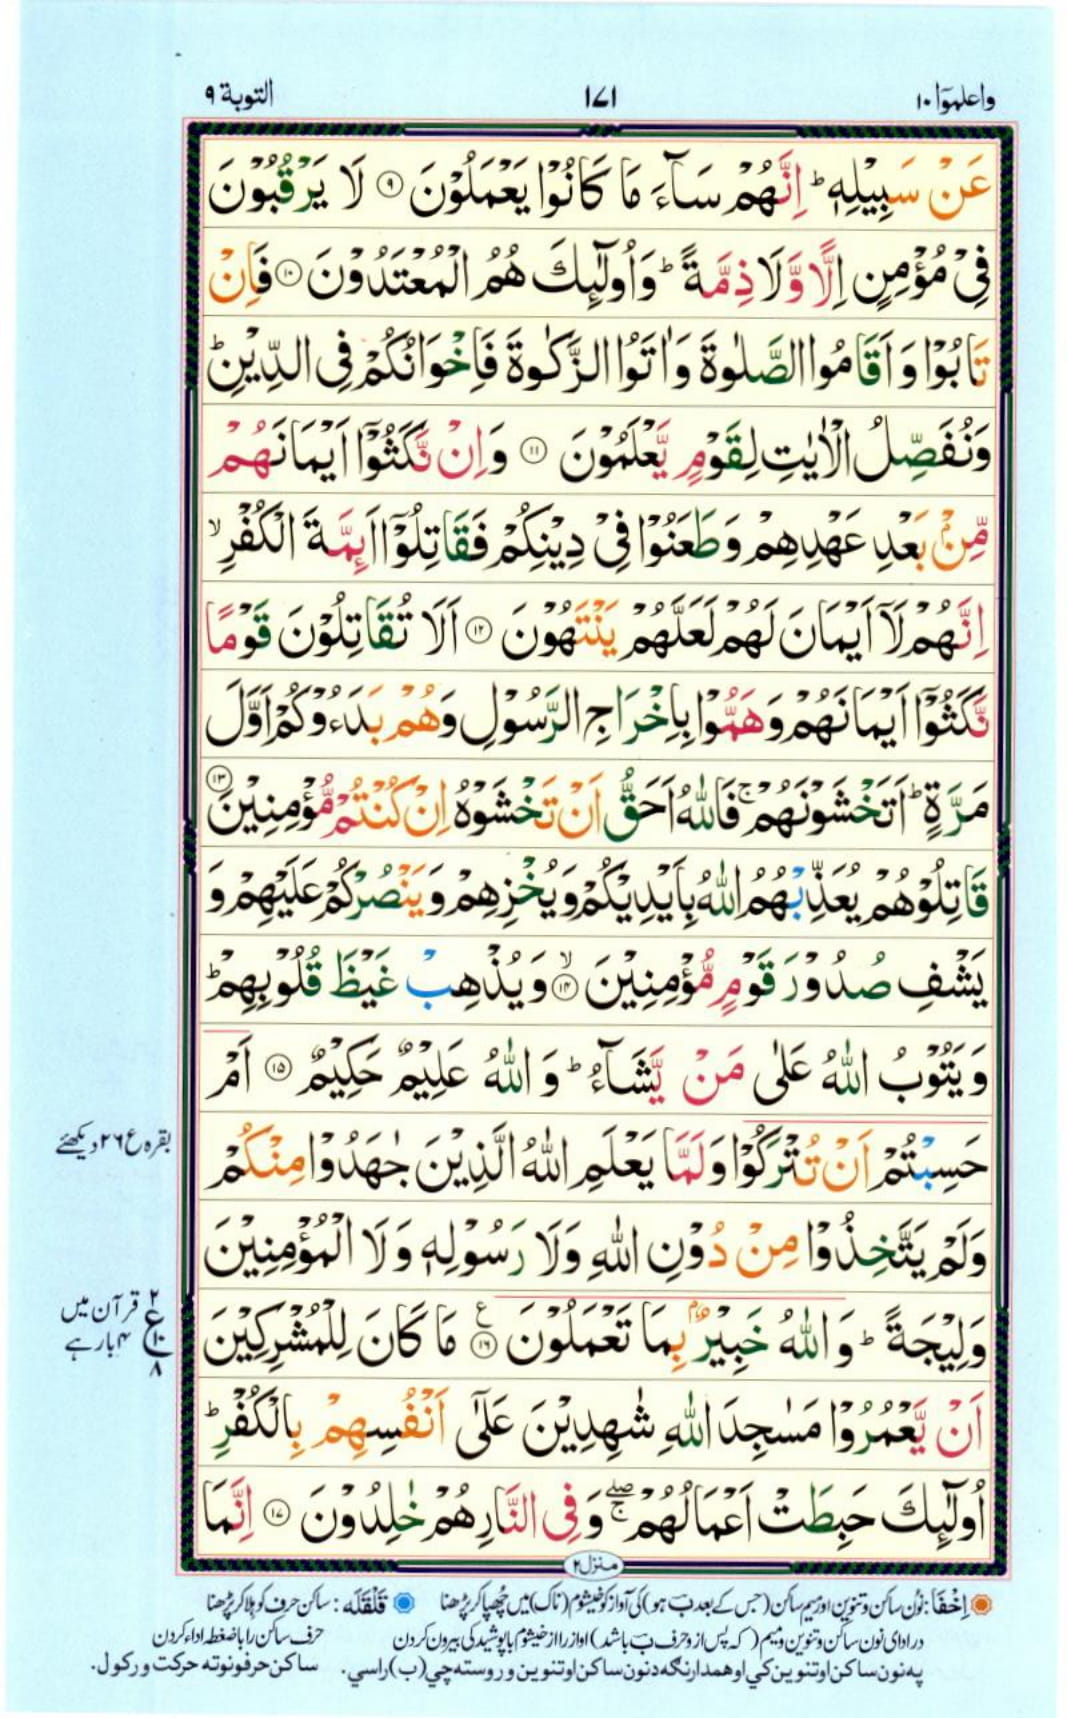 واعلموٓا ۱۰
۱۷۱
التوبة ۹
عَنْ سَبِيْلِهٖ ؕ اِنَّهُمْ سَآءَ مَا كَانُوْا يَعْمَلُوْنَ ۹ لَا يَرْقُبُوْنَ
فِيْ مُؤْمِنٍ اِلًّا وَّلَا ذِمَّةً ؕ وَاُولٰٓئِكَ هُمُ الْمُعْتَدُوْنَ ۱۰ فَاِنْ
تَابُوْا وَاَقَامُوا الصَّلٰوةَ وَاٰتَوُا الزَّكٰوةَ فَاِخْوَانُكُمْ فِي الدِّيْنِ ؕ
وَنُفَصِّلُ الْاٰيٰتِ لِقَوْمٍ يَّعْلَمُوْنَ ۱۱ وَاِنْ نَّكَثُوْٓا اَيْمَانَهُمْ
مِّنْۢ بَعْدِ عَهْدِهِمْ وَطَعَنُوْا فِيْ دِيْنِكُمْ فَقَاتِلُوْٓا اَئِمَّةَ الْكُفْرِ ۙ
اِنَّهُمْ لَآ اَيْمَانَ لَهُمْ لَعَلَّهُمْ يَنْتَهُوْنَ ۱۲ اَلَا تُقَاتِلُوْنَ قَوْمًا
نَّكَثُوْٓا اَيْمَانَهُمْ وَهَمُّوْا بِاِخْرَاجِ الرَّسُوْلِ وَهُمْ بَدَءُوْكُمْ اَوَّلَ
مَرَّةٍ ؕ اَتَخْشَوْنَهُمْ ۚ فَاللّٰهُ اَحَقُّ اَنْ تَخْشَوْهُ اِنْ كُنْتُمْ مُّؤْمِنِيْنَ ۱۳
قَاتِلُوْهُمْ يُعَذِّبْهُمُ اللّٰهُ بِاَيْدِيْكُمْ وَيُخْزِهِمْ وَيَنْصُرْكُمْ عَلَيْهِمْ وَ
يَشْفِ صُدُوْرَ قَوْمٍ مُّؤْمِنِيْنَ ۙ ۱۴ وَيُذْهِبْ غَيْظَ قُلُوْبِهِمْ ؕ
وَيَتُوْبُ اللّٰهُ عَلٰى مَنْ يَّشَآءُ ؕ وَاللّٰهُ عَلِيْمٌ حَكِيْمٌ ۱۵ اَمْ
حَسِبْتُمْ اَنْ تُتْرَكُوْا وَلَمَّا يَعْلَمِ اللّٰهُ الَّذِيْنَ جٰهَدُوْا مِنْكُمْ
وَلَمْ يَتَّخِذُوْا مِنْ دُوْنِ اللّٰهِ وَلَا رَسُوْلِهٖ وَلَا الْمُؤْمِنِيْنَ
وَلِيْجَةً ؕ وَاللّٰهُ خَبِيْرٌۢ بِمَا تَعْمَلُوْنَ ۱۶ ع مَا كَانَ لِلْمُشْرِكِيْنَ
اَنْ يَّعْمُرُوْا مَسٰجِدَ اللّٰهِ شٰهِدِيْنَ عَلٰٓى اَنْفُسِهِمْ بِالْكُفْرِ ؕ
اُولٰٓئِكَ حَبِطَتْ اَعْمَالُهُمْ ۚ ۖ وَفِي النَّارِ هُمْ خٰلِدُوْنَ ۱۷ اِنَّمَا
بقرہ ع ۲۶ دیکھئے
۲ ع ۱۰ ۸
قرآن میں
۴ بار ہے
منزل ۲
اِخْفَا : نُون ساکن و تنوین اور میم ساکن (جس کے بعد بَ ہو) کی آواز کو خیشوم (ناک) میں چُھپا کر پڑھنا
قَلْقَلَه : ساکن حرف کو ہلا کر پڑھنا
در ادای نون ساکن و تنوین و میم ( که پس از و حرف بَ باشد ) اواز را از خیشوم با پوشیدگی بیرون کردن
حرف ساکن را با ضغطه اداء کردن
په نون ساکن او تنوین کې او همدارنګه د نون ساکن او تنوین و روسته چې (ب) راسي.
ساکن حرفونو ته حرکت ورکول.